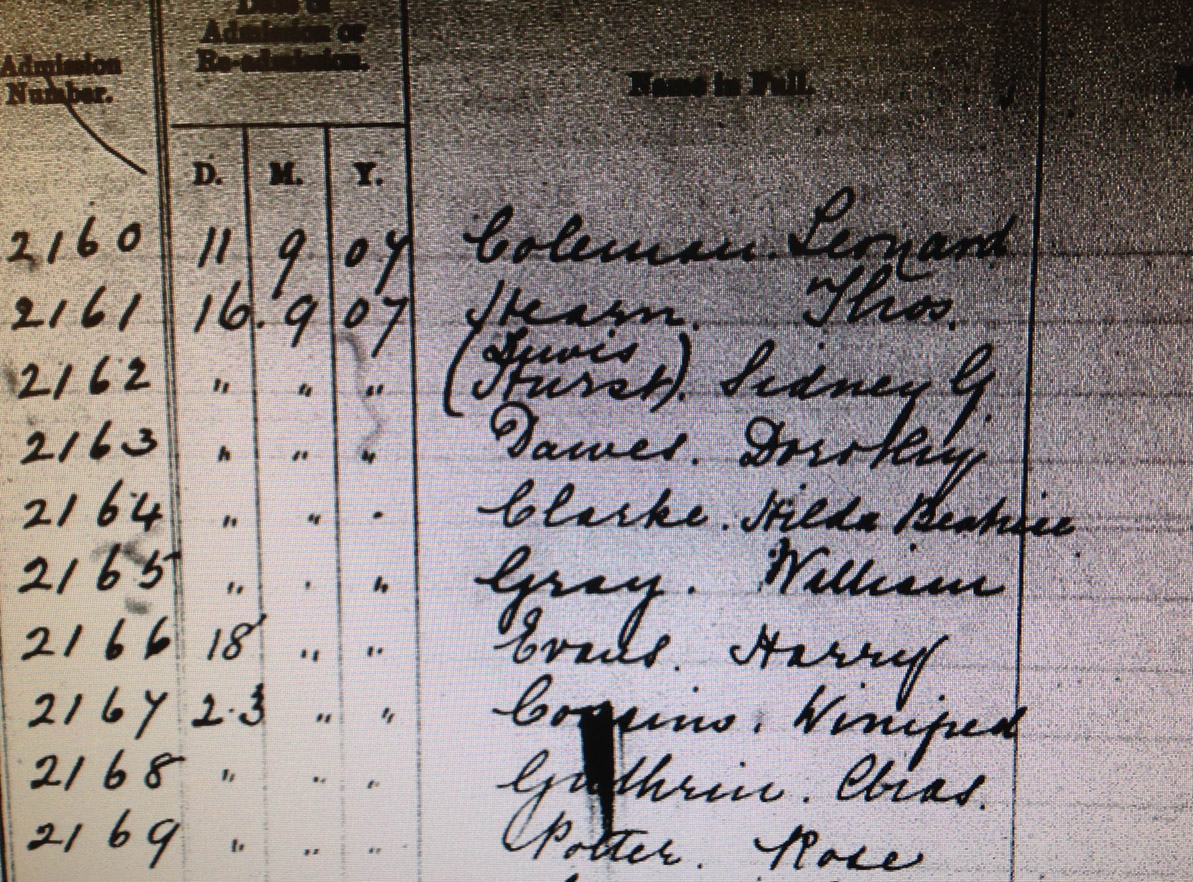 Date of
Admission or
Re-admission.
Admission
Number.
Name in Full.
D. M. Y.
2160 11 9 07 Coleman. Leonard
2161 16. 9 07 Hearn. Thos.
(Lewis
2162 " " " Hurst). Sidney G.
2163 " " " Dawes. Dorothy
2164 " " " Clarke. Hilda Beatrice
2165 " " " Gray. William
2166 18 " " Evans. Harry
2167 23 " " Cousins. Winifred
2168 " " " Guthrie. Chas.
2169 " " " Potter. Rose